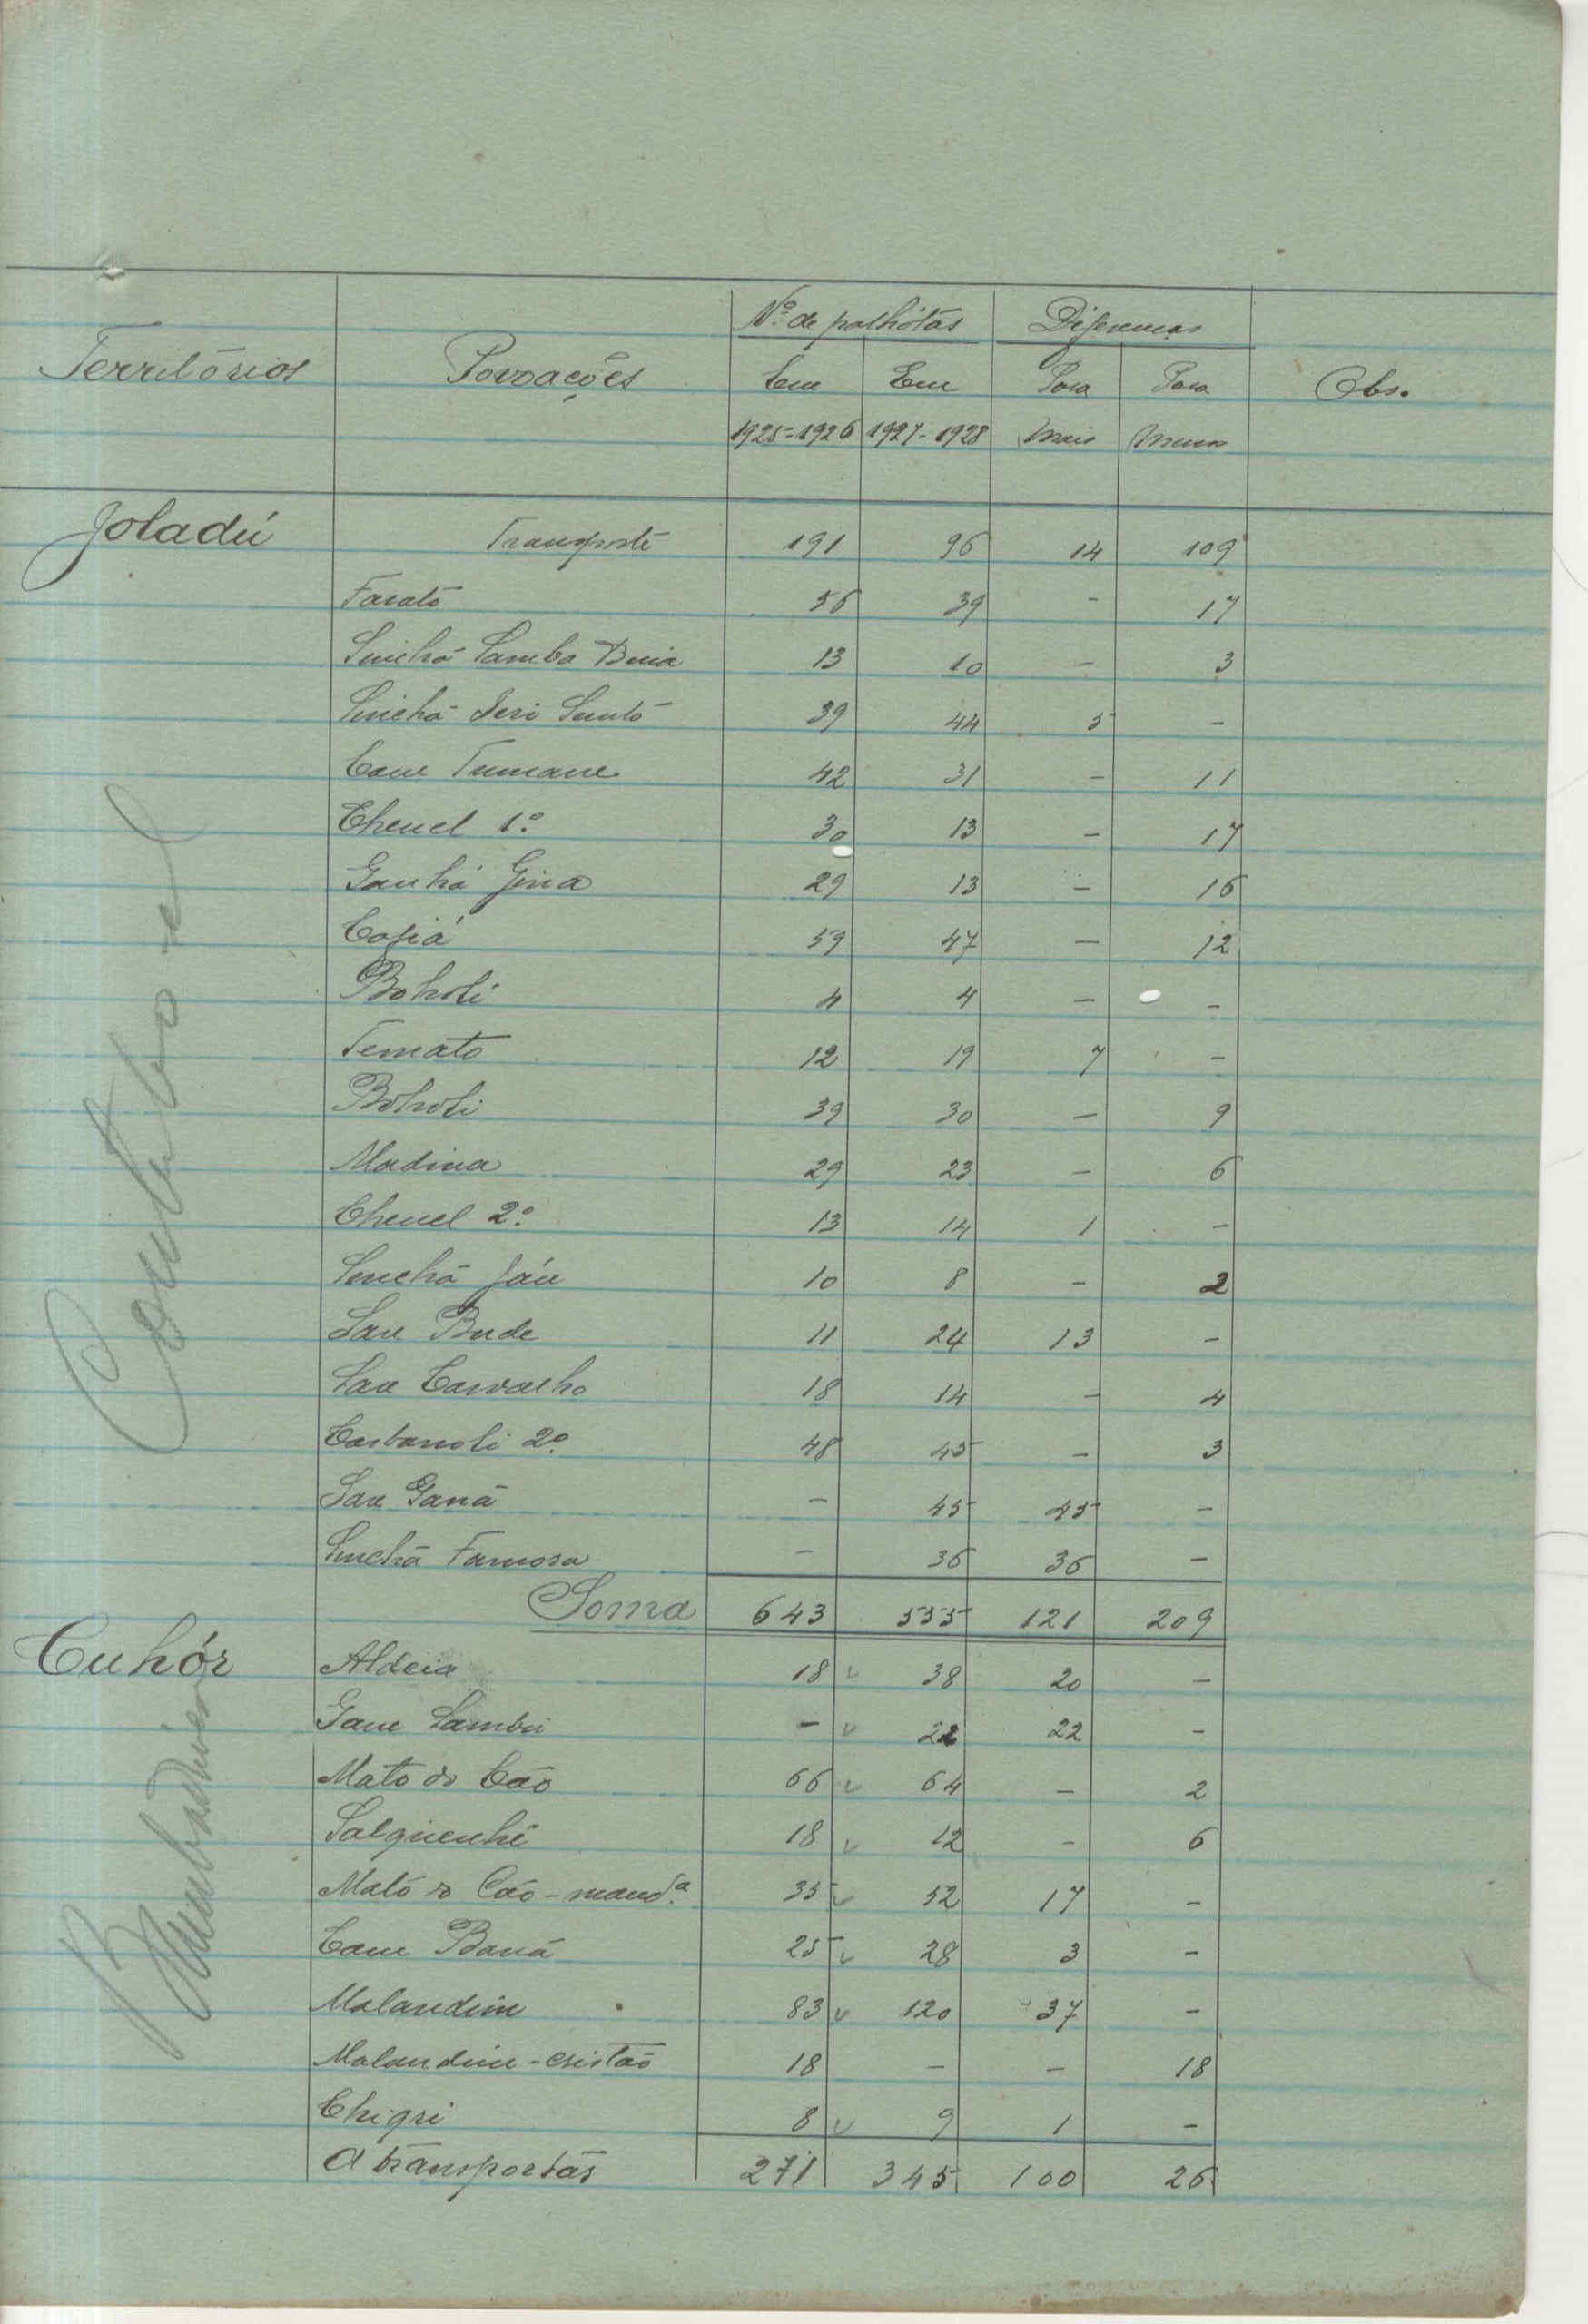 Territórios Povoações Nº de palhótas Diferenças Obs.
Em Em Para Para
1925-1926 1927-1928 mais menos
Joladú Transporte 191 96 14 109
Farató 56 39 - 17
Sinchã Samba 13 10 - 3
Sinchã Sori 39 44 5 -
Cam Tumane 42 31 - 11
Chenel 1.º 30 13 - 17
Ganhá Gina 29 13 - 16
59 47 - 12
Boholi 4 4 - -
Temato 12 19 7 -
Boholi 39 30 - 9
Madina 29 23 - 6
Chenel 2.º 13 14 1 -
Sinchã Jáu 10 8 - 2
Sare Bude 11 24 13 -
Sare Carvalho 18 14 - 4
2º 48 45 - 3
Sare Ganá - 45 45 -
Sinchã Famosa - 36 36 -
Soma 643 555 121 209
Cuhór Aldeia 18 38 20 -
Gam Sambú - 22 22 -
Mato do Cão 66 64 - 2
Salquenhé 18 12 - 6
Mató do Cão-mandª 35 52 17 -
Cam Baná 25 28 3 -
Malandim 83 120 37 -
Malandim-cristão 18 - - 18
Chiqri 8 9 1 -
A transportar 271 345 100 26